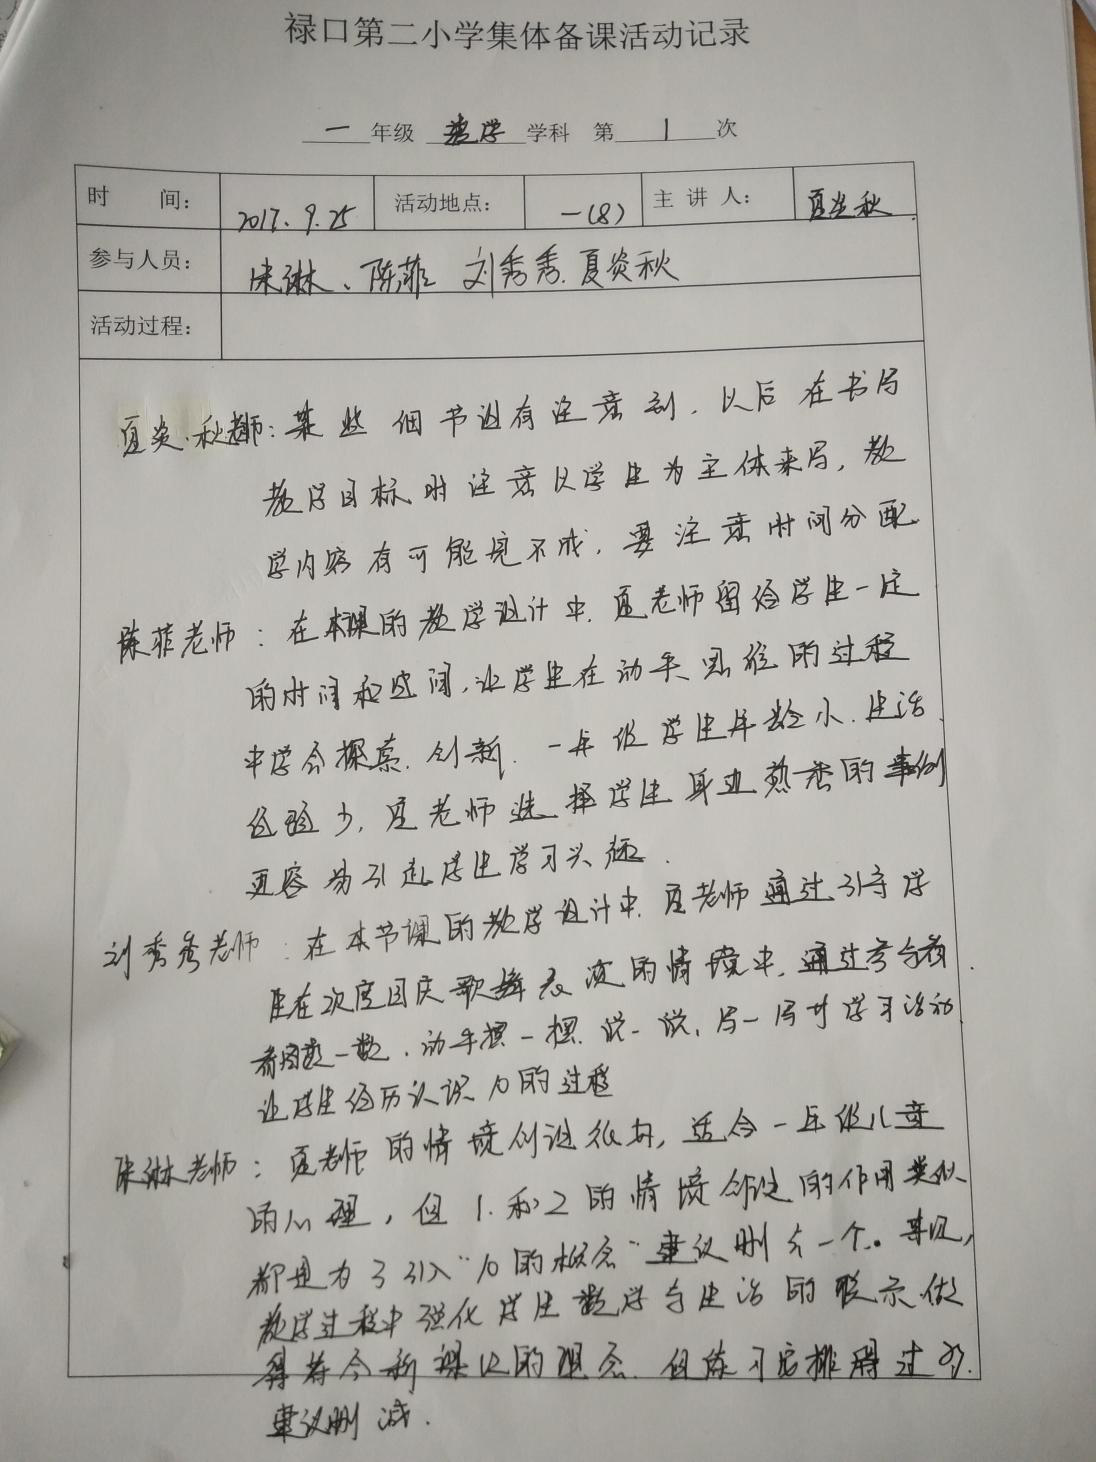 禄口第二小学集体备课活动记录
一 年级 数学 学科 第 1 次
时 间： 2017.9.25 活动地点： 一(8) 主 讲 人： 夏炎秋
参与人员： 宋琳、陈菲 刘秀秀.夏炎秋
活动过程：
夏炎秋老师：某些细节没有注意到，以后在书写
教学目标时注意以学生为主体来写，教
学内容有可能完不成，要注意时间分配.
陈菲老师：在本课的教学设计中，夏老师留给学生一定
的时间和空间，让学生在动手思维的过程
中学会探索.创新.一年级学生年龄小.生活
经验少，夏老师选择学生身边熟悉的事例
更容易引起学生学习兴趣.
刘秀秀老师：在本节课的教学设计中，夏老师通过引导学
生在欢度国庆歌舞表演的情境中，通过
看图数一数，动手摆一摆.说一说，写一写等学习活动
让学生经历认识10的过程
宋琳老师：夏老师的情境创设很好，适合一年级儿童
的心理，但1.和2的情境创设的作用类似
都是为了引入“10的概念”建议删去一个。其次，
教学过程中强化学生数学与生活的联系做
得符合新课改的理念.但练习安排得过多.
建议删减.